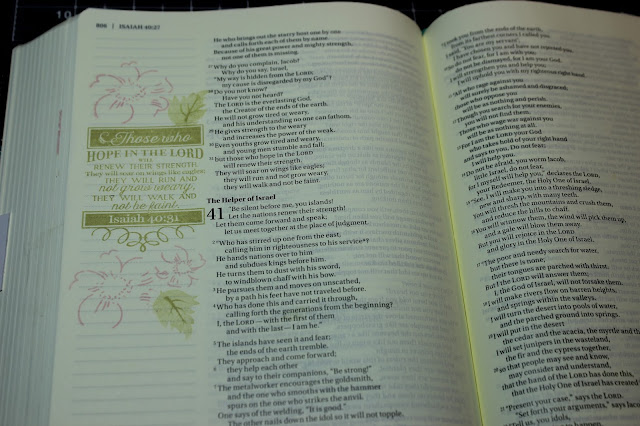 806 | ISAIAH 40:27
Those who
HOPE IN THE LORD
WILL
RENEW THEIR STRENGTH.
They will soar on wings like eagles;
THEY WILL RUN AND
not grow weary,
THEY WILL WALK AND
not be faint.
Isaiah 40:31
He who brings out the starry host one by one
and calls forth each of them by name.
Because of his great power and mighty strength,
not one of them is missing.
27 Why do you complain, Jacob?
Why do you say, Israel,
"My way is hidden from the LORD;
my cause is disregarded by my God"?
28 Do you not know?
Have you not heard?
The LORD is the everlasting God,
the Creator of the ends of the earth.
He will not grow tired or weary,
and his understanding no one can fathom.
29 He gives strength to the weary
and increases the power of the weak.
30 Even youths grow tired and weary,
and young men stumble and fall;
31 but those who hope in the LORD
will renew their strength.
They will soar on wings like eagles;
they will run and not grow weary,
they will walk and not be faint.
The Helper of Israel
41 "Be silent before me, you islands!
Let the nations renew their strength!
Let them come forward and speak;
let us meet together at the place of judgment.
2 "Who has stirred up one from the east,
calling him in righteousness to his service?
He hands nations over to him
and subdues kings before him.
He turns them to dust with his sword,
to windblown chaff with his bow.
3 He pursues them and moves on unscathed,
by a path his feet have not traveled before.
4 Who has done this and carried it through,
calling forth the generations from the beginning?
I, the LORD — with the first of them
and with the last — I am he."
5 The islands have seen it and fear;
the ends of the earth tremble.
They approach and come forward;
6 they help each other
and say to their companions, "Be strong!"
7 The metalworker encourages the goldsmith,
and the one who smooths with the hammer
spurs on the one who strikes the anvil.
One says of the welding, "It is good."
The other nails down the idol so it will not topple.
I took you from the ends of the earth,
from its farthest corners I called you.
I said, 'You are my servant';
I have chosen you and have not rejected you.
do not fear, for I am with you;
do not be dismayed, for I am your God.
I will strengthen you and help you;
I will uphold you with my righteous right hand.
11 "All who rage against you
will surely be ashamed and disgraced;
those who oppose you
will be as nothing and perish.
12 Though you search for your enemies,
you will not find them.
Those who wage war against you
will be as nothing at all.
13 For I am the LORD your God
who takes hold of your right hand
and says to you, Do not fear;
I will help you.
14 Do not be afraid, you worm Jacob,
little Israel, do not fear,
for I myself will help you," declares the LORD,
your Redeemer, the Holy One of Israel.
15 "See, I will make you into a threshing sledge,
new and sharp, with many teeth.
You will thresh the mountains and crush them,
and reduce the hills to chaff.
16 You will winnow them, the wind will pick them up,
and a gale will blow them away.
But you will rejoice in the LORD
and glory in the Holy One of Israel.
17 "The poor and needy search for water,
but there is none;
their tongues are parched with thirst.
But I the LORD will answer them;
I, the God of Israel, will not forsake them.
18 I will make rivers flow on barren heights,
and springs within the valleys.
I will turn the desert into pools of water,
and the parched ground into springs.
19 I will put in the desert
the cedar and the acacia, the myrtle and the
I will set junipers in the wasteland,
the fir and the cypress together,
20 so that people may see and know,
may consider and understand,
that the hand of the LORD has done this,
that the Holy One of Israel has created
21 "Present your case," says the LORD.
"Set forth your arguments," says Jaco
22 "Tell us, you idols,